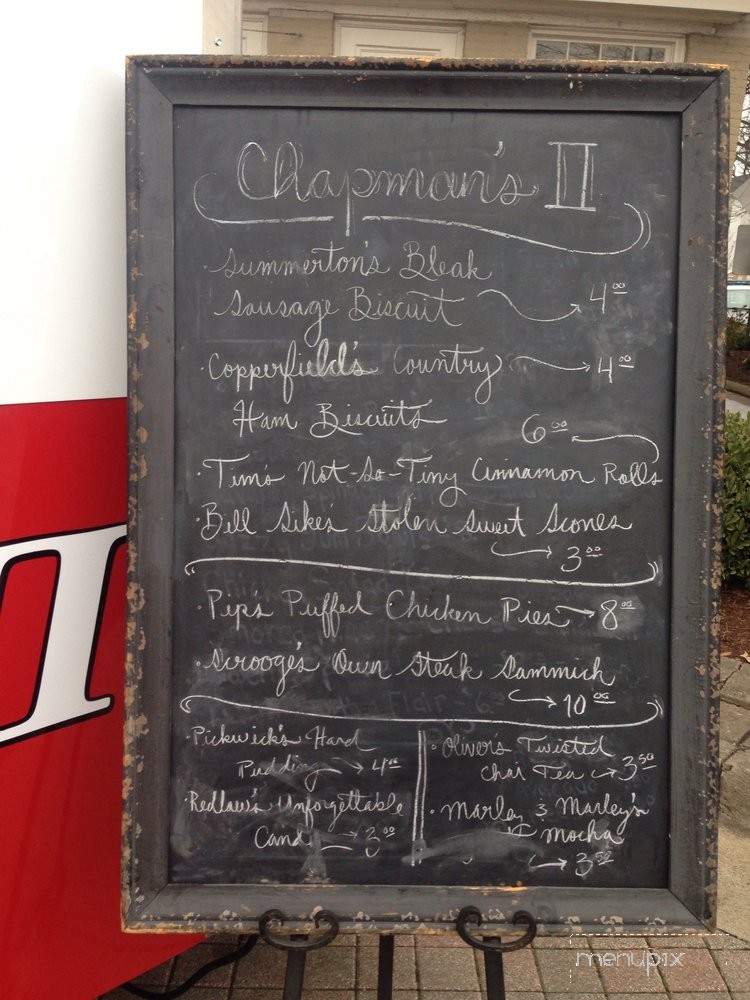 Chapman's II
· Summerton's Bleak
Sausage Biscuit 4.00
· Copperfield's Country 4.00
Ham Biscuits
6.00
· Tim's Not-So-Tiny Cinnamon Rolls
· Bill Sike's Stolen Sweet Scones
3.00
· Pip's Puffed Chicken Pies 8.00
· Scrooge's Own Steak Sammich
10.00
· Pickwick's Hard
Pudding 4.00
· Redlaw's Unforgettable
Cand 3.00
· Oliver's Twisted
Chai Tea 3.50
· Marley & Marley's
Mocha
3.50
menupix